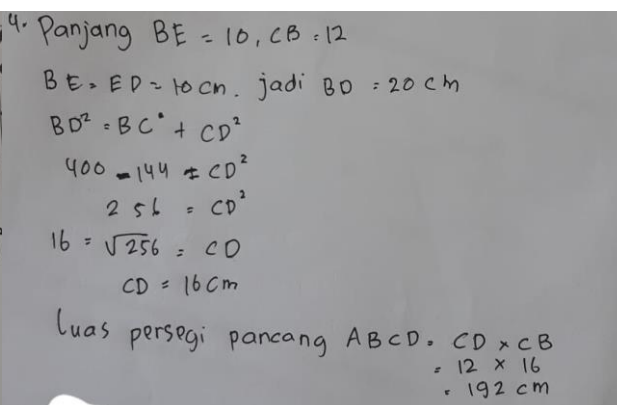 4. Panjang BE = 10, CB = 12
BE = ED = 10 cm. jadi BD = 20 cm
BD² = BC² + CD²
400 - 144 = CD²
256 = CD²
16 = √256 = CD
CD = 16 cm
Luas persegi pancang ABCD = CD × CB
= 12 × 16
= 192 cm